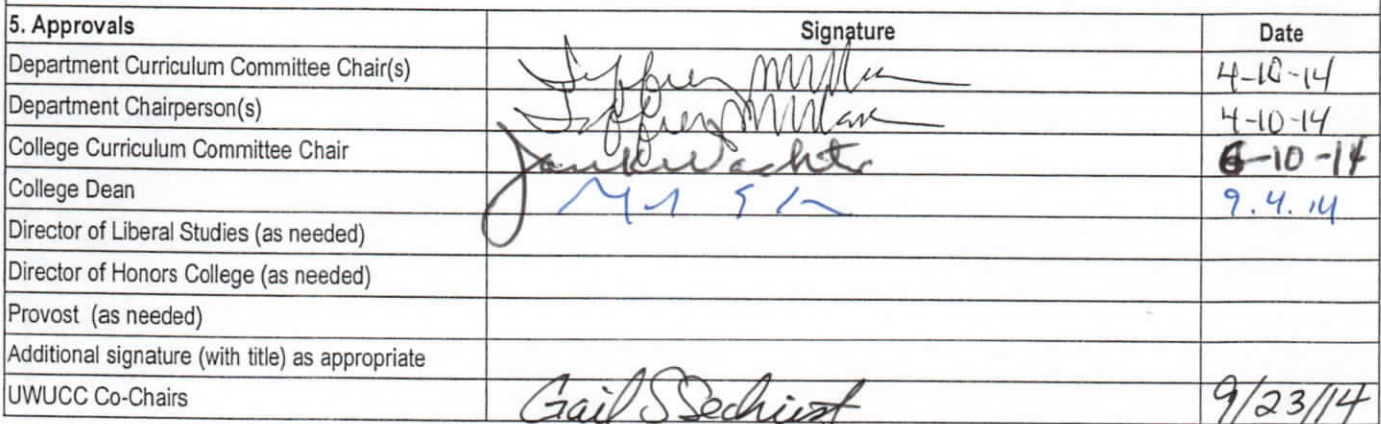 5. Approvals Signature Date
Department Curriculum Committee Chair(s) 4-10-14
Department Chairperson(s) 4-10-14
College Curriculum Committee Chair 6-10-14
College Dean 9.4.14
Director of Liberal Studies (as needed)
Director of Honors College (as needed)
Provost (as needed)
Additional signature (with title) as appropriate
UWUCC Co-Chairs Gail S Sechrist 9/23/14